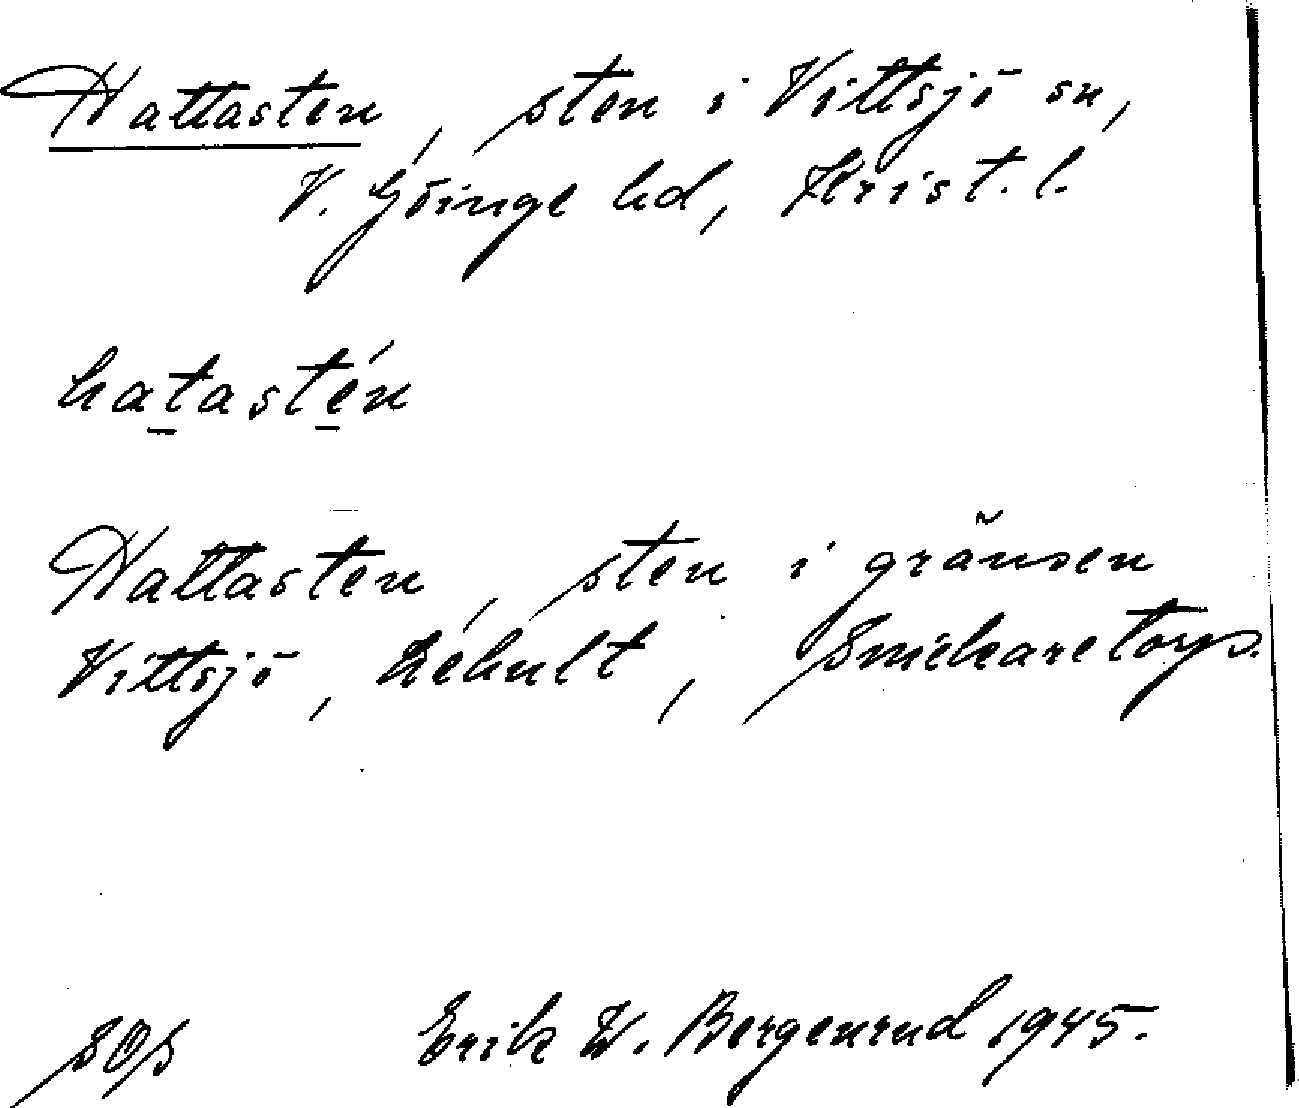 Hattasten, sten i Vittsjö sn,
V. Göinge hd, Krist. l.
hatastén
Hattasten, sten i gränsen
Vittsjö, Lehult, Smikaretorp.
Erik W. Bergenrud 1945.